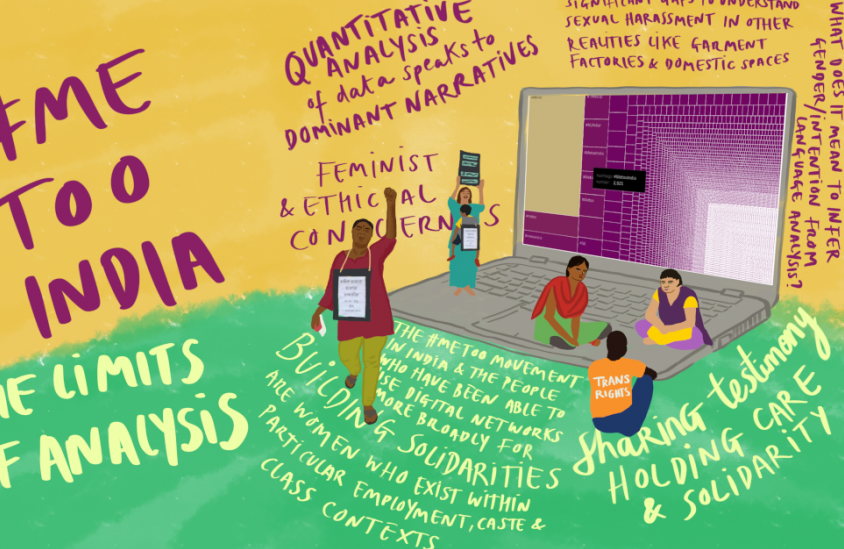 #ME
TOO
INDIA
LIMITS
ANALYSIS
QUANTITATIVE
ANALYSIS
of data speaks to
DOMINANT NARRATIVES
FEMINIST
& ETHICAL
CONCERNS
SIGNIFICANT GAPS TO UNDERSTAND
SEXUAL HARASSMENT IN OTHER
REALITIES LIKE GARMENT
FACTORIES & DOMESTIC SPACES
WHAT DOES IT MEAN TO INFER
GENDER/INTENTION FROM
LANGUAGE ANALYSIS?
THE #METOO MOVEMENT
IN INDIA & THE PEOPLE
WHO HAVE BEEN ABLE TO
USE DIGITAL NETWORKS
MORE BROADLY FOR
BUILDING SOLIDARITIES
ARE WOMEN WHO EXIST WITHIN
PARTICULAR EMPLOYMENT, CASTE &
CLASS CONTEXTS
TRANS
RIGHTS
Sharing testimony
HOLDING CARE
& SOLIDARITY